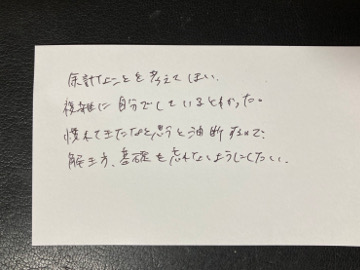 余計なことを考えてしまい、
複雑に自分でしているとわかった。
慣れてきたなと思うと油断するので、
解き方、基礎を忘れないようにしたい。